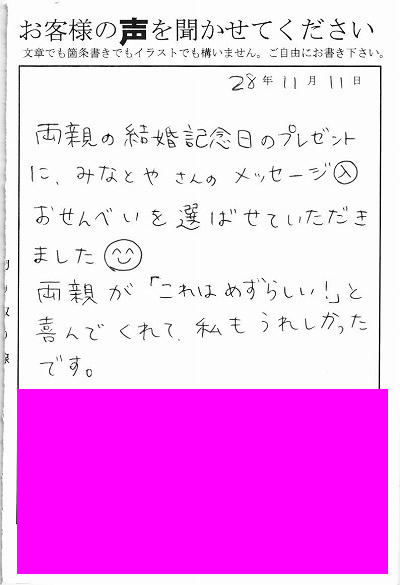 お客様の声を聞かせてください
文章でも箇条書きでもイラストでも構いません。ご自由にお書き下さい。
28年11月11日
両親の結婚記念日のプレゼント
に、みなとやさんのメッセージ入
おせんべいを選ばせていただき
ました
両親が「これはめずらしい!」と
喜んでくれて、私もうれしかった
です。
切り取り線